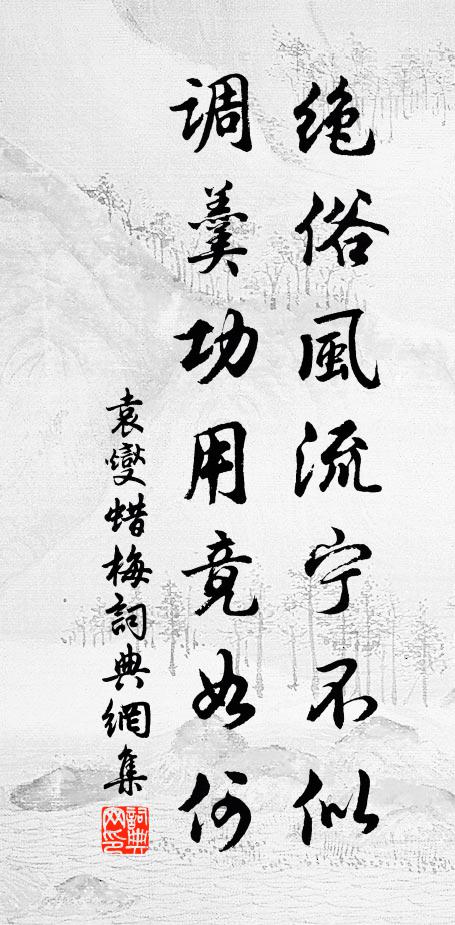 绝俗風流宁不似
调羹功用竟如何
袁燮蜡梅詞典網集
詞典网印